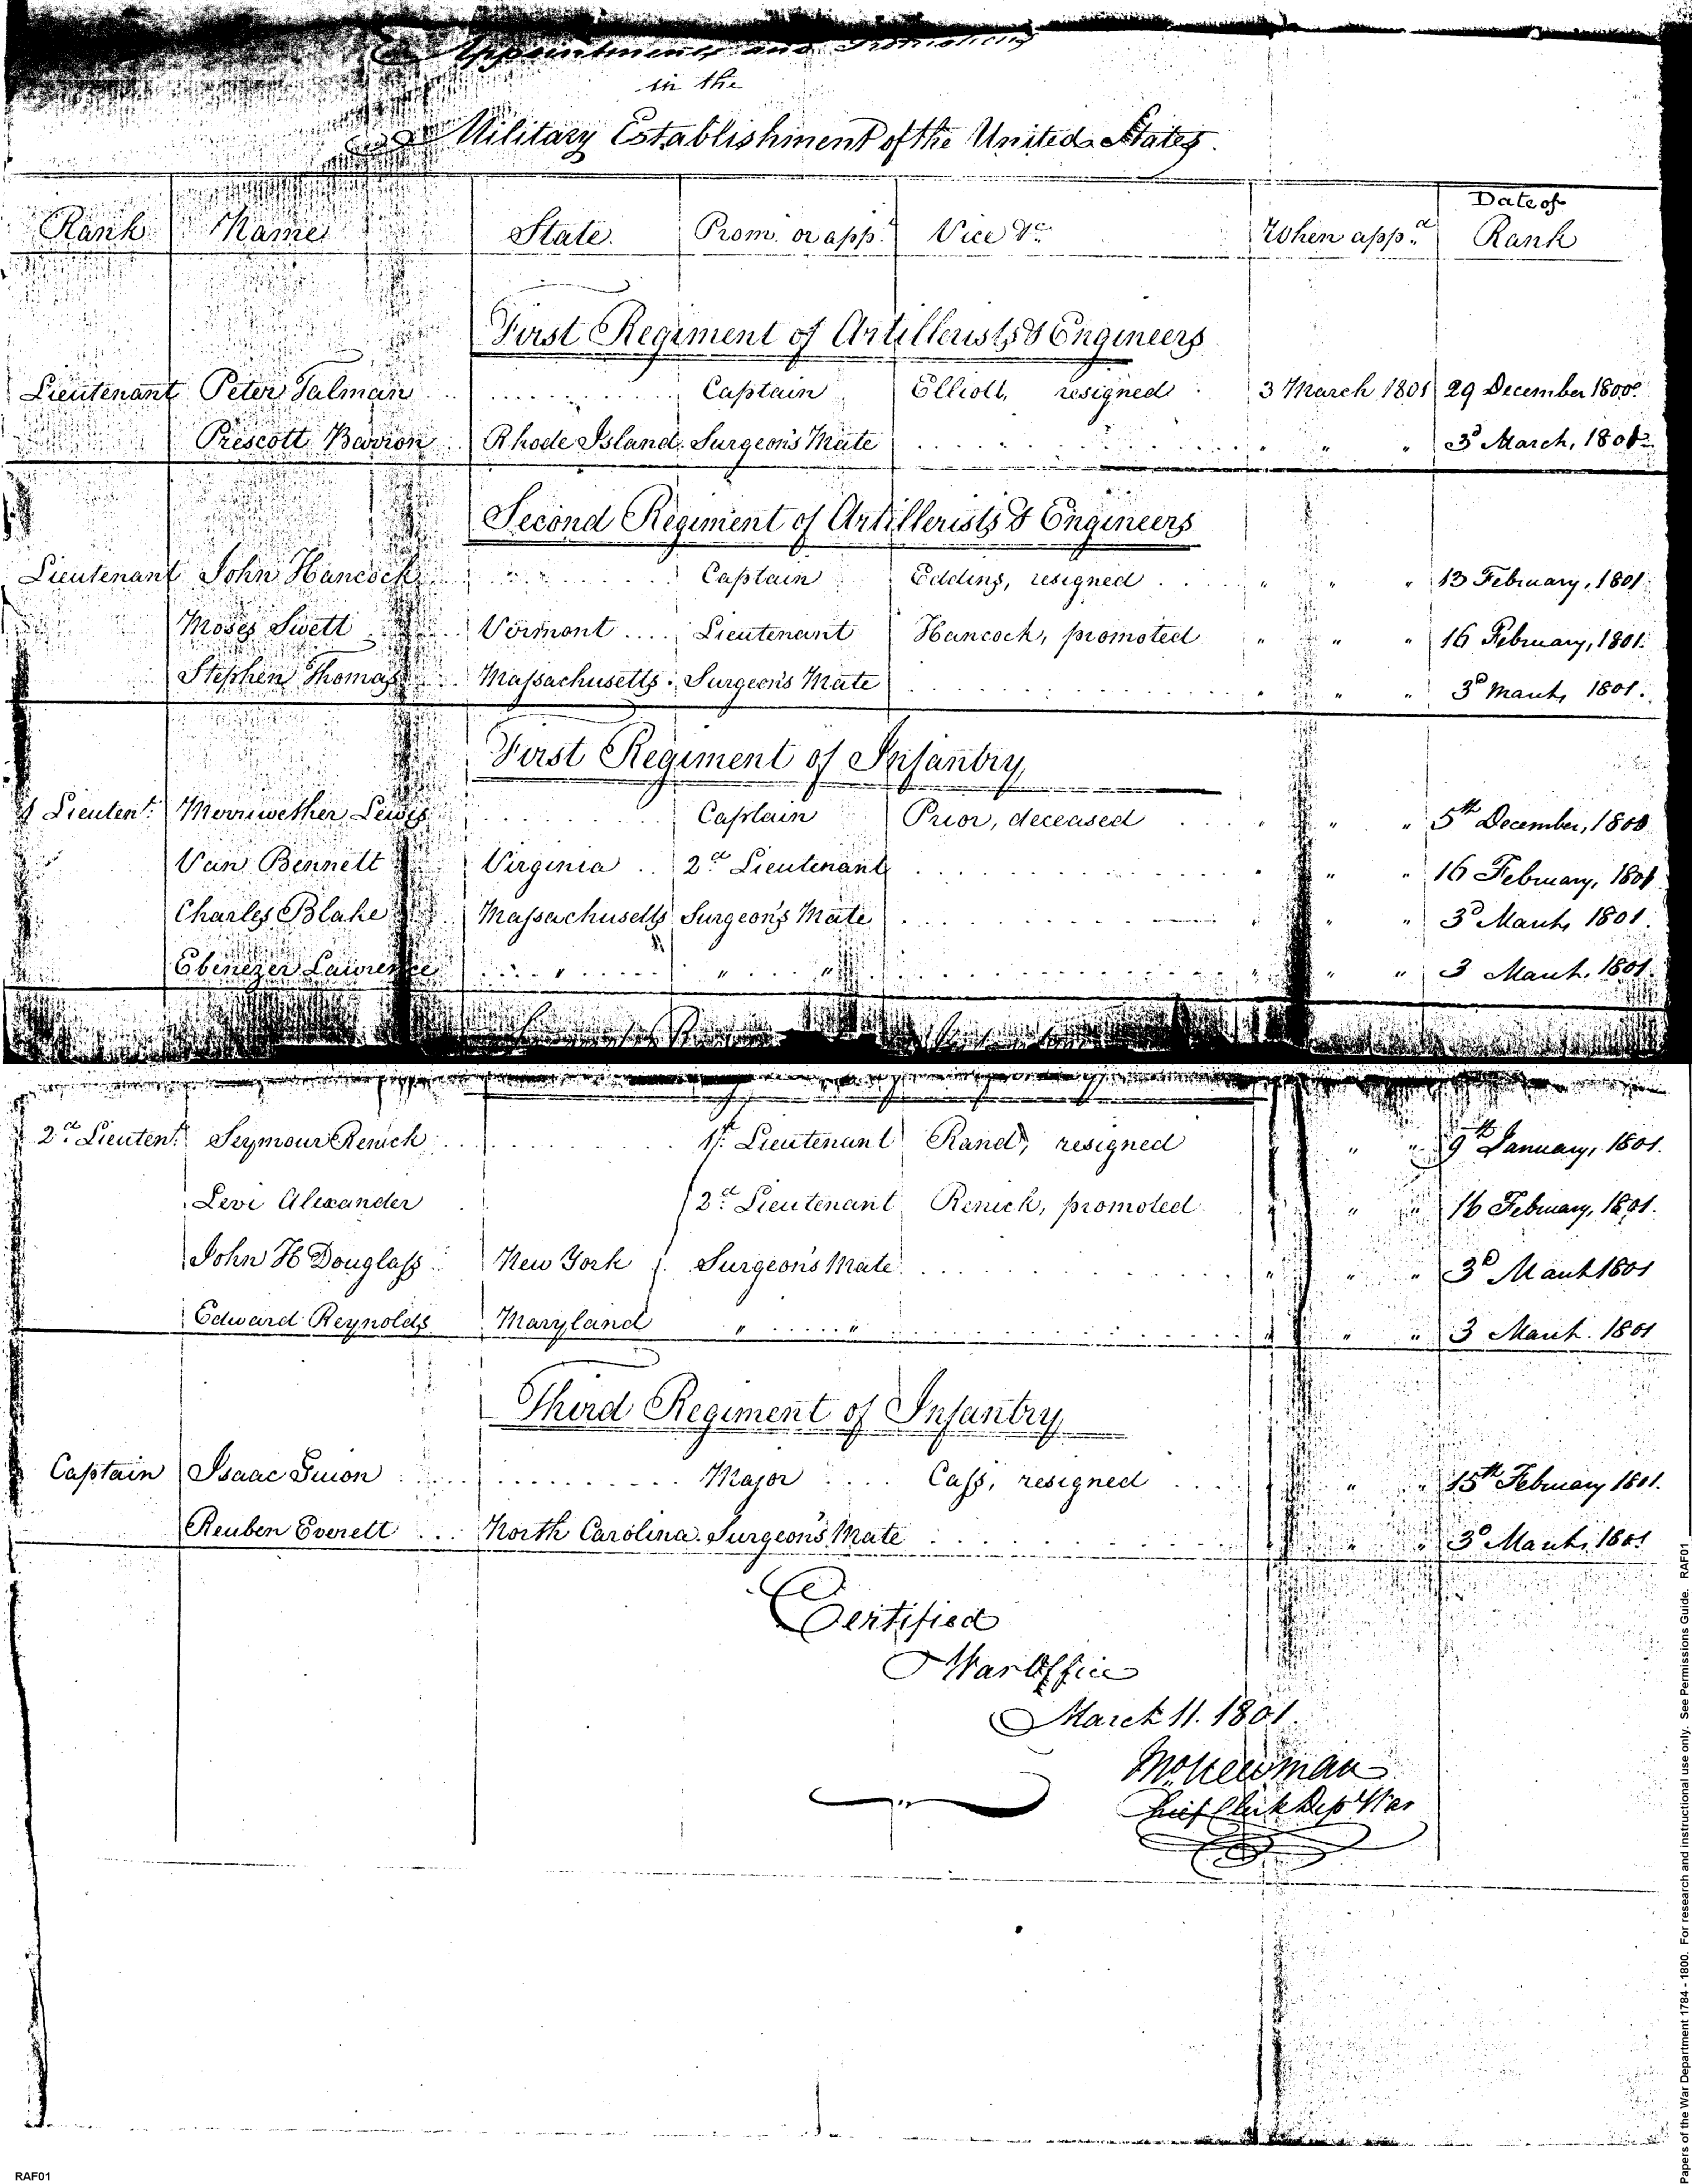 Appointments and Promotions
in the
Military Establishment of the United States.
Rank Name State. Prom. or app.t Vice &c. When app.d Date of Rank
First Regiment of Artillerists & Engineers
Lieutenant Peter Talman Captain Elliott, resigned 3 March 1801 29 December 1800.
Prescott Barron Rhode Island. Surgeon's Mate " " 3d March, 1801.
Second Regiment of Artillerists & Engineers
Lieutenant John Hancock Captain Eddins, resigned " " " 13 February, 1801.
Moses Swett Vermont Lieutenant Hancock, promoted " " " 16 February, 1801.
Stephen Thomas Massachusetts. Surgeon's Mate " " " 3d March, 1801.
First Regiment of Infantry
1 Lieuten.t Merriwether Lewis Captain Prior, deceased " " " 5th December, 1800
Van Bennett Virginia 2.d Lieutenant " " " 16 February, 1801
Charles Blake Massachusetts Surgeon's Mate " " " 3d March, 1801.
Ebenezer Lawrence " " " " " " 3 March, 1801.
2.d Lieuten.t Seymour Renick 1st. Lieutenant Rand, resigned " " 9th January, 1801.
Levi Alexander 2.d Lieutenant Renick, promoted " " " 16 February, 1801.
John H Douglass New York Surgeon's Mate " " " 3d March 1801
Edward Reynolds Maryland " " " " " 3 March. 1801
Third Regiment of Infantry
Captain Isaac Guion Major Cass, resigned " " 15th February 1801.
Reuben Everett North Carolina. Surgeon's Mate " " 3d March, 1801
Certified
War Office
March 11. 1801.
Chief Clerk Dep War
RAF01
Papers of the War Department 1784 - 1800. For research and instructional use only. See Permissions Guide. RAF01